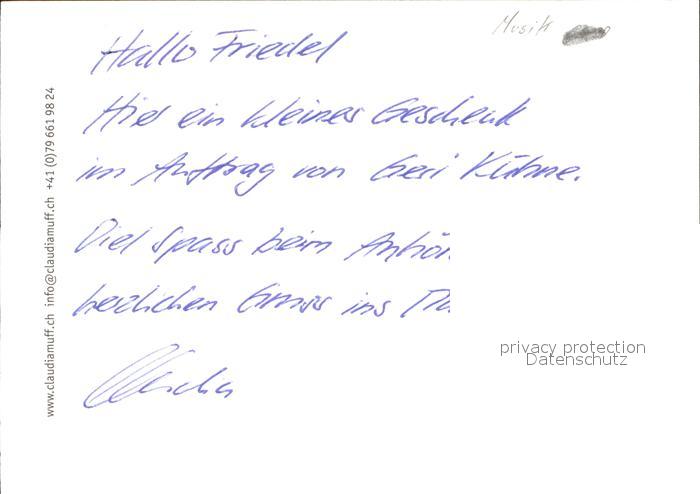 Musik
Hallo Friedel
Hier ein kleines Geschenk
im Auftrag von Geri Kühne.
Viel Spass beim Anhör
herzlichen Gruss ins
www.claudiamuff.ch info@claudiamuff.ch +41 (0)79 661 98 24
privacy protection
Datenschutz